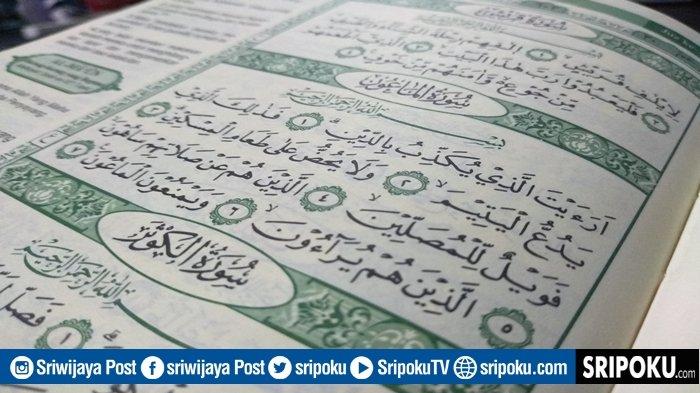 سُوْرَةُ قُرَيْشٍ
لِاِيْلٰفِ قُرَيْشٍ ١ اٖلٰفِهِمْ رِحْلَةَ الشِّتَاۤءِ وَالصَّيْفِ
فَلْيَعْبُدُوْا رَبَّ هٰذَا الْبَيْتِ ٣ الَّذِيْٓ اَطْعَمَهُمْ
مِّنْ جُوْعٍ وَّاٰمَنَهُمْ مِّنْ خَوْفٍ ٤
سُوْرَةُ الْمَاعُوْنَ
بِسْمِ اللّٰهِ الرَّحْمٰنِ الرَّحِيْمِ
اَرَءَيْتَ الَّذِيْ يُكَذِّبُ بِالدِّيْنِ ١ فَذٰلِكَ الَّذِيْ
يَدُعُّ الْيَتِيْمَ ٢ وَلَا يَحُضُّ عَلٰى طَعَامِ الْمِسْكِيْنِ ٣
فَوَيْلٌ لِّلْمُصَلِّيْنَ ٤ الَّذِيْنَ هُمْ عَنْ صَلَاتِهِمْ سَاهُوْنَ ٥
الَّذِيْنَ هُمْ يُرَاۤءُوْنَ ٦ وَيَمْنَعُوْنَ الْمَاعُوْنَ ٧
سُوْرَةُ الْكَوْثَرَ
بِسْمِ اللّٰهِ الرَّحْمٰنِ الرَّحِيْمِ
Sriwijaya Post sriwijaya Post sripoku SripokuTV sripoku.com
SRIPOKU.com